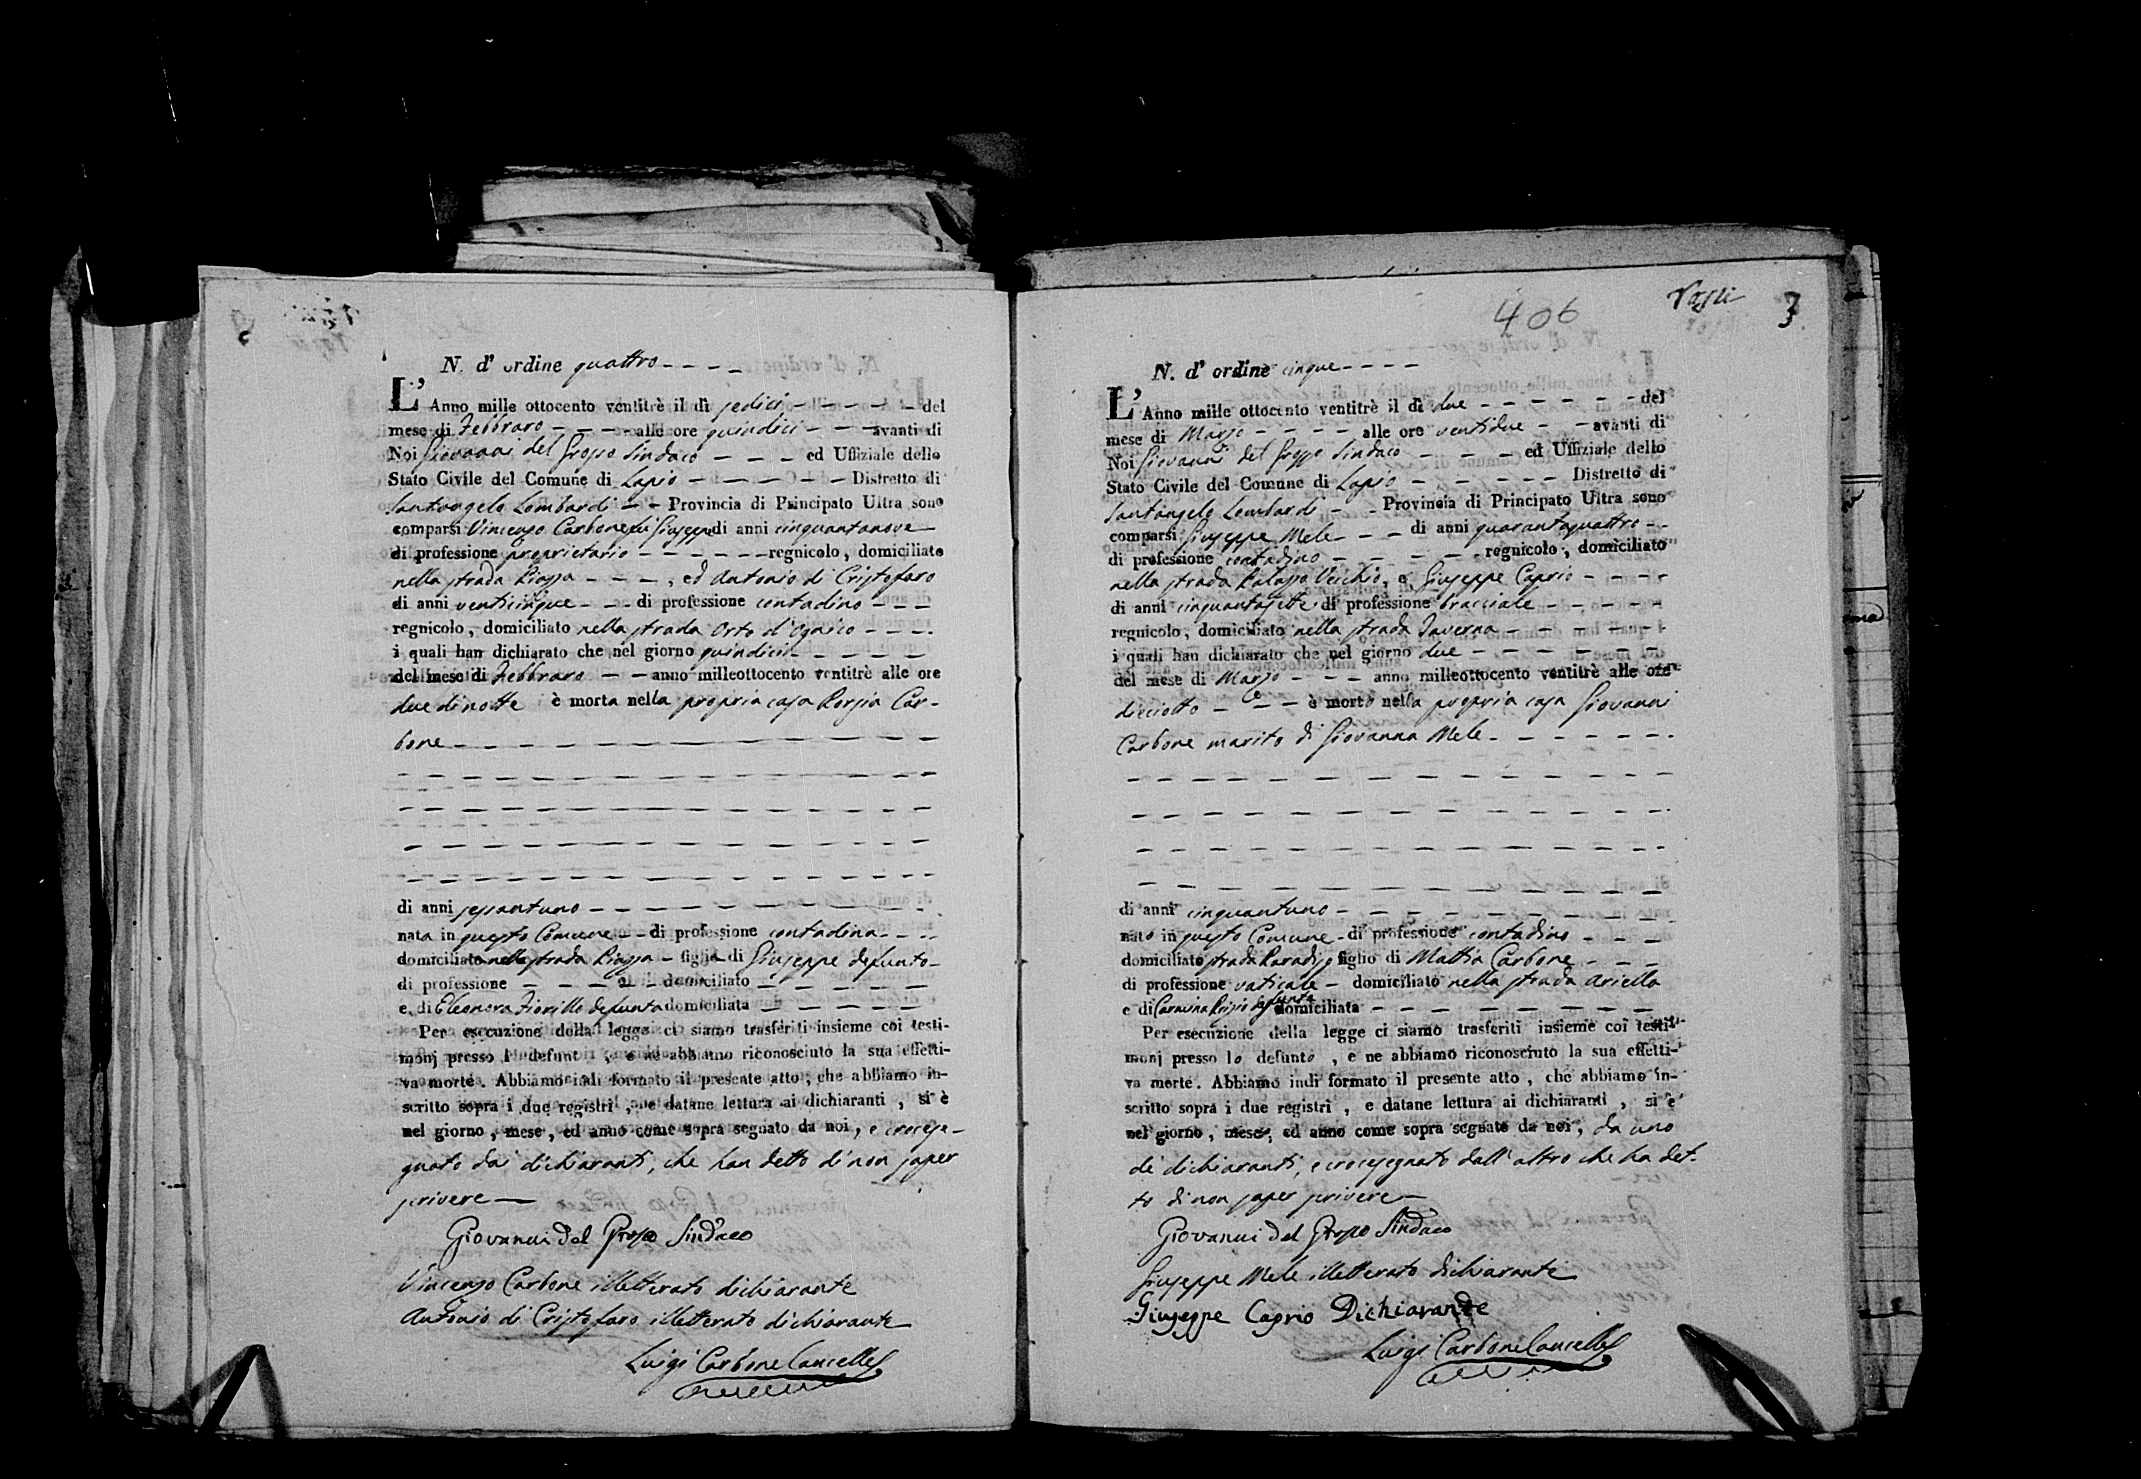 N. d'ordine quattro
L'Anno mille ottocento ventitrè il dì sedici del
mese di Febbraro alle ore quindici avanti di
Noi Giovanni del Grosso Sindaco ed Uffiziale dello
Stato Civile del Comune di Lapio Distretto di
Santangelo Lombardi Provincia di Principato Ultra sono
comparsi Vincenzo Carbone di Giuseppe di anni cinquantanove
di professione proprietario regnicolo, domiciliato
nella strada Piazza, ed Antonio di Cristofaro
di anni venticinque di professione contadino
regnicolo, domiciliato nella strada Orto d'
i quali han dichiarato che nel giorno quindici
del mese di Febbraro anno milleottocento ventitrè alle ore
due di notte è morta nella propria casa Porzia Car-
bone
di anni sessantuno
nata in questo Comune di professione contadina
domiciliata nella strada Piazza figlia di Giuseppe defunto
di professione domiciliato
e di Eleonora Fiorillo defunta domiciliata
Per esecuzione della legge ci siamo trasferiti insieme coi testi-
monj presso l defunt , e ne abbiamo riconosciuto la sua effetti-
va morte. Abbiamo indi formato il presente atto, che abbiamo in-
scritto sopra i due registri, e datane lettura ai dichiaranti, si è
nel giorno, mese, ed anno come sopra segnato da noi, e crocese-
gnato dai dichiaranti, che han detto di non saper
scrivere
Giovanni del Grosso Sindaco
Vincenzo Carbone illetterato dichiarante
Antonio di Cristofaro illetterato dichiarante
Luigi Carbone Cancelle
406 3
N. d'ordine cinque
L'Anno mille ottocento ventitrè il dì due del
mese di Marzo alle ore ventidue avanti di
Noi Giovanni del Grosso Sindaco ed Uffiziale dello
Stato Civile del Comune di Lapio Distretto di
Santangelo Lombardi Provincia di Principato Ultra sono
comparsi Giuseppe Mele di anni quarantaquattro
di professione contadino regnicolo, domiciliato
nella strada Palazzo Vecchio, e Giuseppe Caprio
di anni cinquantasette di professione bracciale
regnicolo, domiciliato nella strada Taverna
i quali han dichiarato che nel giorno due
del mese di Marzo anno milleottocento ventitrè alle ore
dieciotto è morto nella propria casa Giovanni
Carbone marito di Giovanna Mele
di anni cinquantuno
nato in questo Comune di professione contadino
domiciliato strada Paradiso figlio di Mattia Carbone
di professione vaticale domiciliato nella strada Ariella
e di Carmina defunta domiciliata
Per esecuzione della legge ci siamo trasferiti insieme coi testi-
monj presso lo defunto, e ne abbiamo riconosciuto la sua effetti-
va morte. Abbiamo indi formato il presente atto, che abbiamo in-
scritto sopra i due registri, e datane lettura ai dichiaranti, si è
nel giorno, mese, ed anno come sopra segnato da noi, da uno
de dichiaranti, e crocesegnato dall'altro che ha det-
to di non saper scrivere
Giovanni del Grosso Sindaco
Giuseppe Mele illetterato dichiarante
Giuseppe Caprio Dichiarande
Luigi Carbone Cancelle